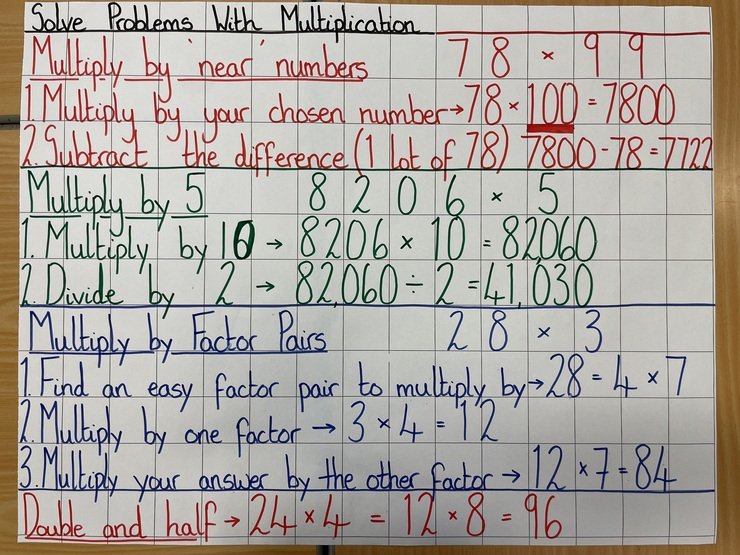 Solve Problems With Multiplication
Multiply by 'near' numbers 78 × 99
1. Multiply by your chosen number → 78 × 100 = 7800
2. Subtract the difference (1 lot of 78) 7800 - 78 = 7722
Multiply by 5 8206 × 5
1. Multiply by 10 → 8206 × 10 = 82,060
2. Divide by 2 → 82,060 ÷ 2 = 41,030
Multiply by Factor Pairs 28 × 3
1. Find an easy factor pair to multiply by → 28 = 4 × 7
2. Multiply by one factor → 3 × 4 = 12
3. Multiply your answer by the other factor → 12 × 7 = 84
Double and half → 24 × 4 = 12 × 8 = 96